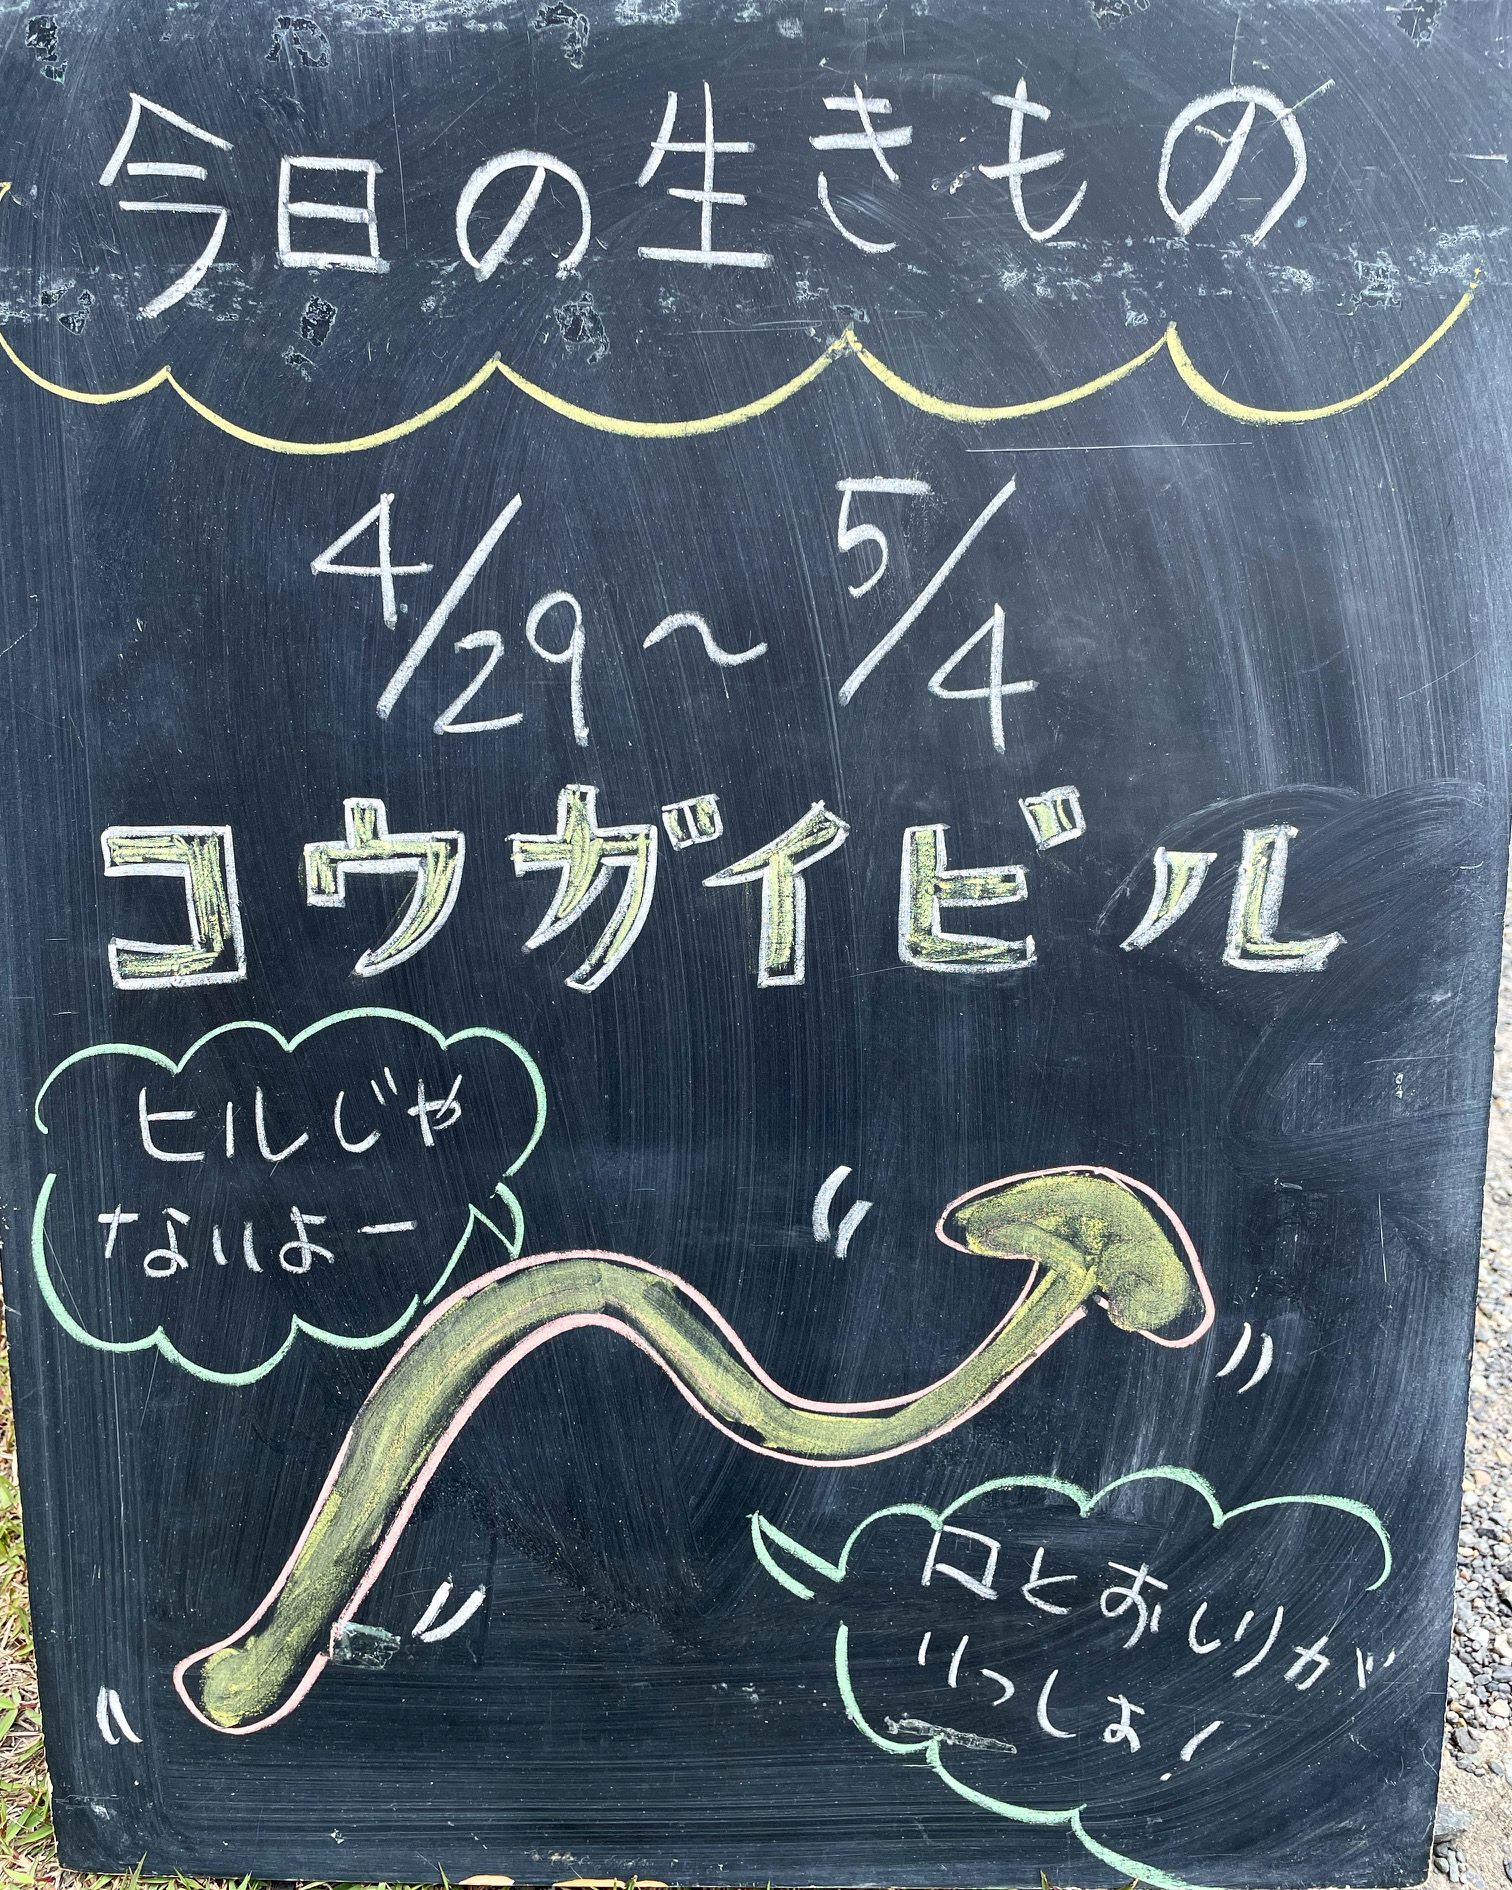 今日の生きもの
4/29～5/4
コウガイビル
ヒルじゃ
ないよー
口とおしりが
いっしょ！